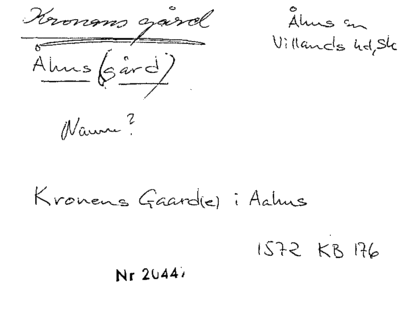 Kronens gård
Åhus sn
Villands hd, Sk
Åhus (gård)
Namn?
Kronens Gaard(e) i Aahus
1572 KB 176
Nr 2044